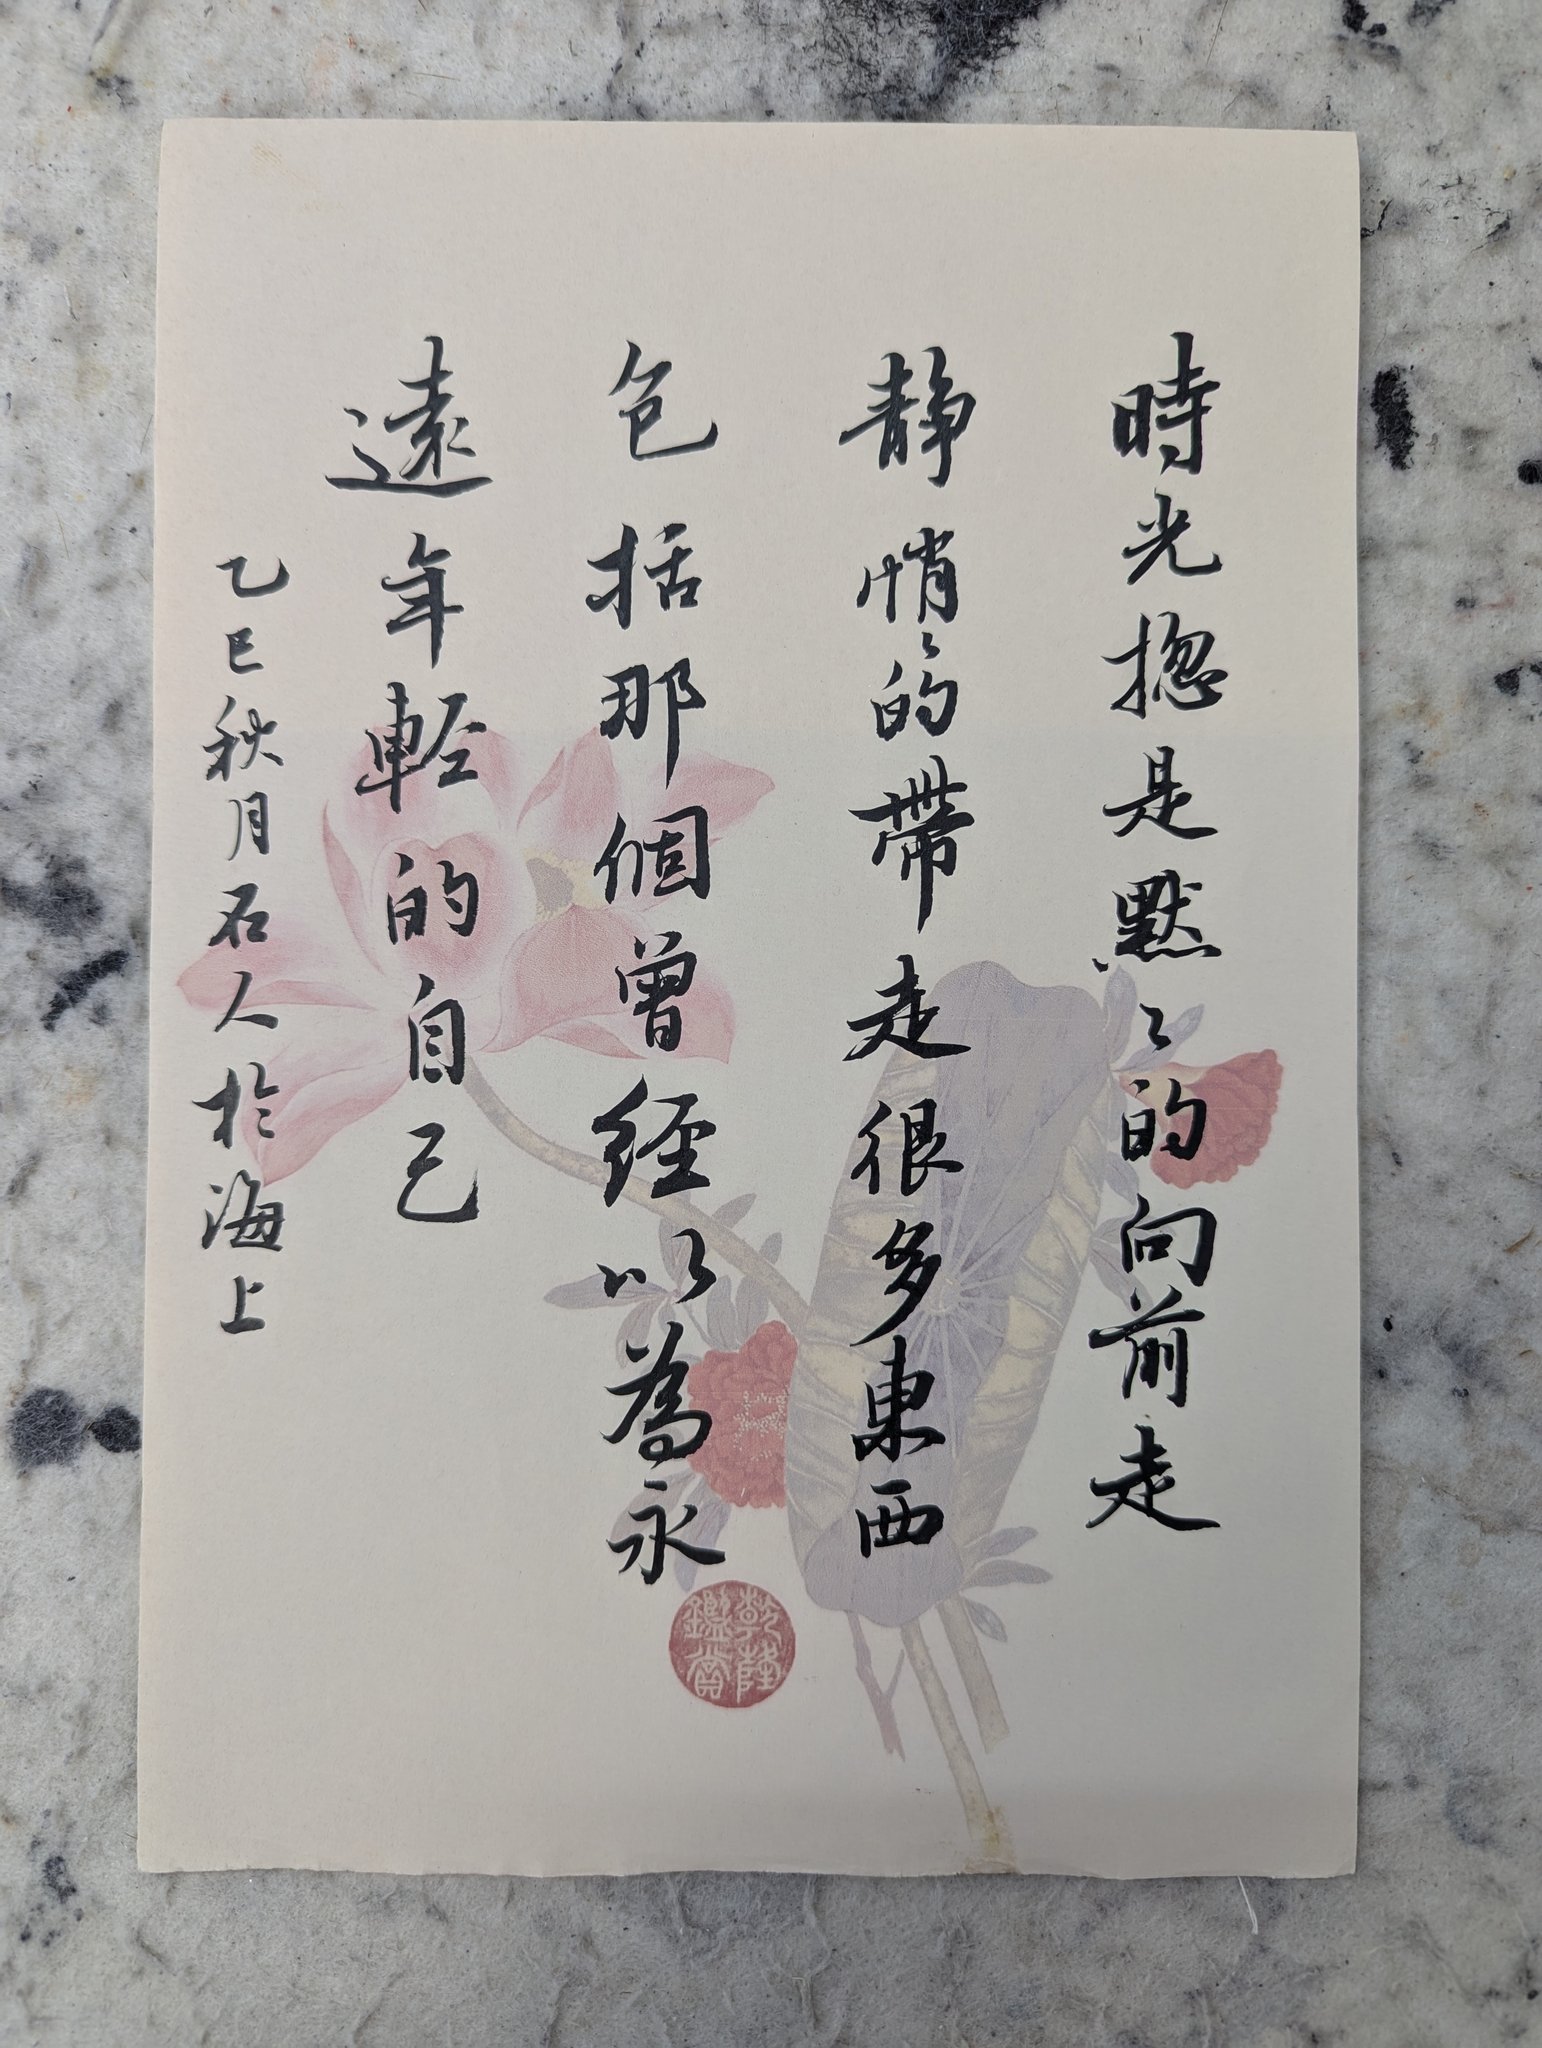 時光揔是默〻的向前走
静悄〻的帶走很多東西
包括那個曾經以為永
遠年輕的自己
乙巳秋月石人於海上
乾隆鑑賞